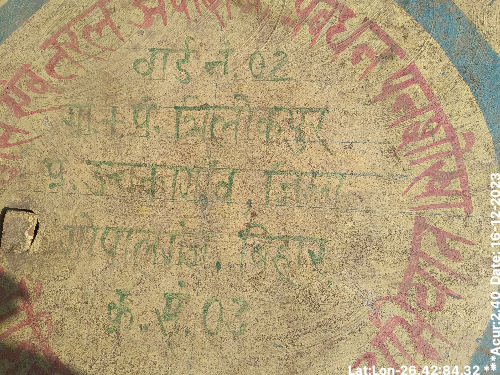 ठोस एवं तरल अपशिष्ट प्रबंधन
वार्ड नं. 02
ग्राम पं. त्रिलोकपुर
प्र. उचकागाँव, जिला
गोपालगंज, बिहार
क्र. सं. 03
Lat:Lon-26.42:84.32 ***Acur:2.40 Date: 16-12-2023